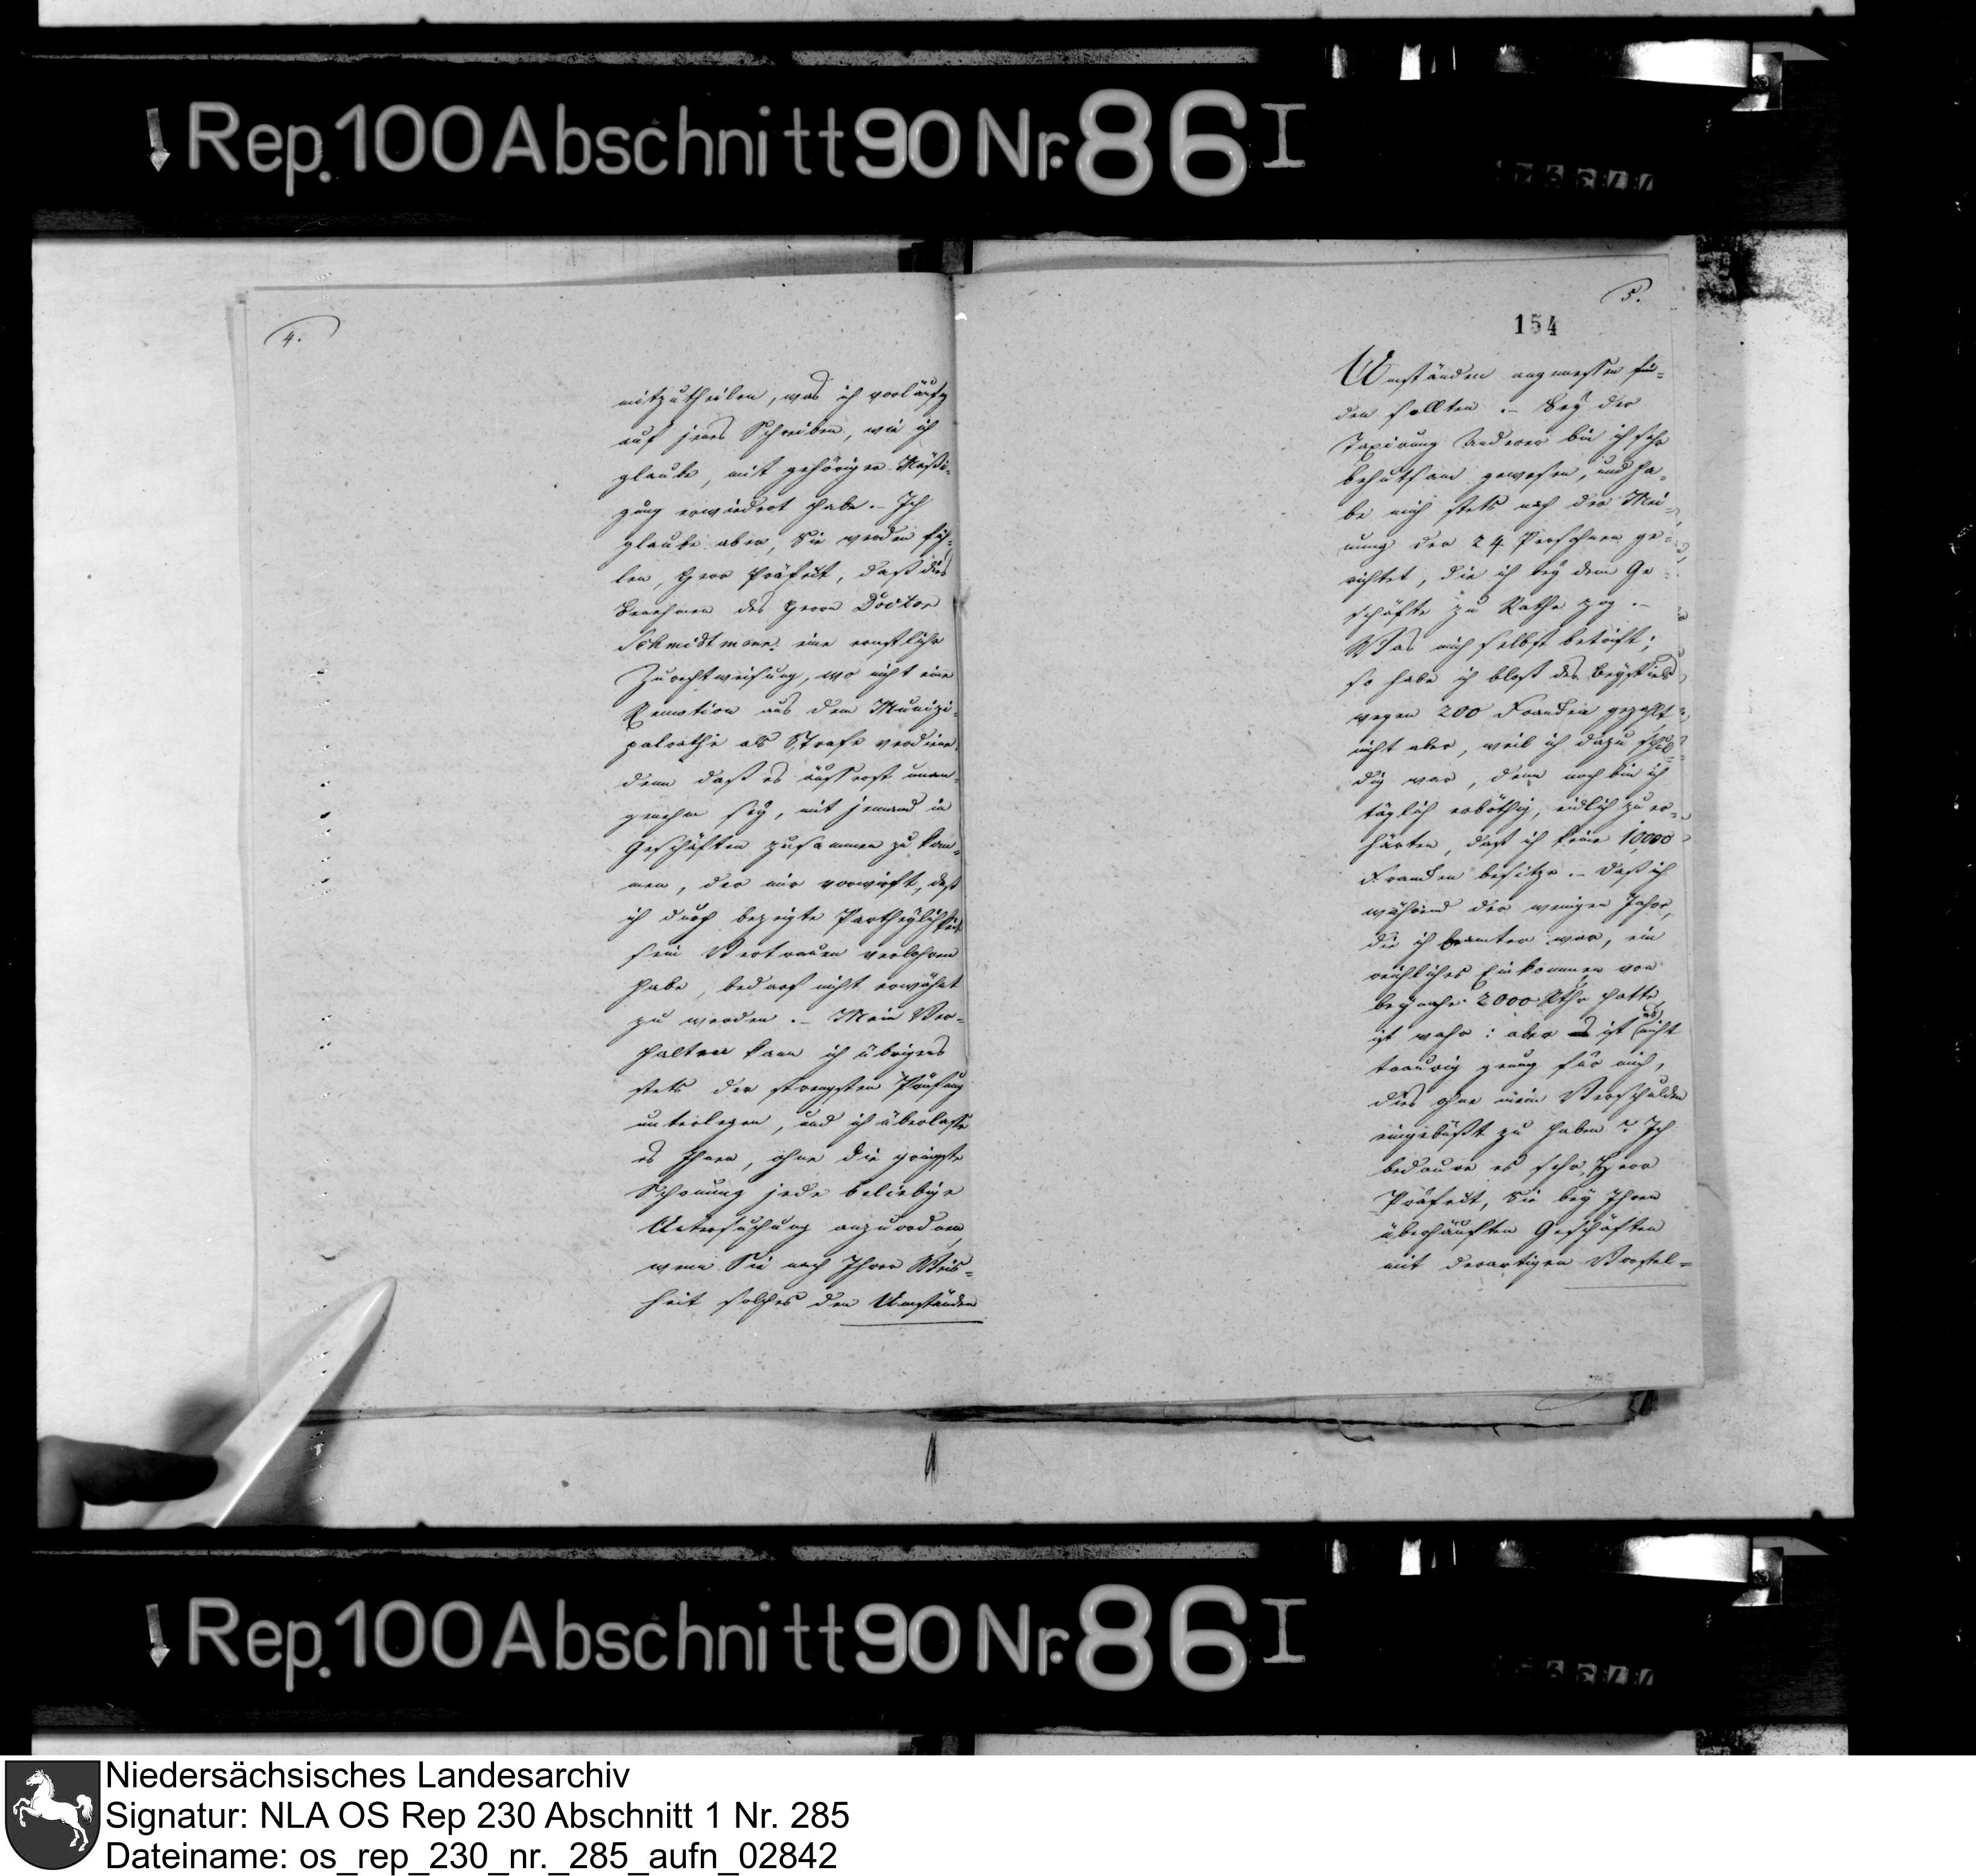 Rep. 100 Abschnitt 90 Nr. 86 I
4.
mitzutheilen, was ich vorläufig
auf jenes Schreiben, wie ich
glaube, mit gehöriger Mäßi-
gung erwiedert habe. – Ich
glaube aber, Sie werden füh-
len, Herr Präfect, daß dies
Benehmen des Herrn Doctor
Schmidtmann eine ernstliche
Zurechtweisung, wo nicht eine
Remotion aus dem Munizi-
palrathe als Strafe verdiene,
denn daß es äusserst unan-
genehm sey, mit jemand in
Geschäften zusammen zu kom-
men, der mir vorwirft, daß
ich durch bezeigte Partheylichkeit
sein Vertrauen verlohren
habe, bedarf nicht erwähnt
zu werden. – Mein Ver-
halten kann ich übrigens
stets der strengsten Prüfung
unterlegen, und ich überlasse
es Ihnen, ohne die gringste
Schonung jede beliebige
Untersuchung anzuordnen,
wenn Sie nach Ihrer Weis-
heit solches den Umständen
5.
154
Umständen angemessen fin-
den sollten. – Bey der
Taxirung Anderer bin ich sehr
behutsam gewesen, und ha-
be mich stets nach der Mei-
nung der 24 Personen ge-
richtet, die ich bey dem Ge-
schäfte zu Rathe zog. –
Was mich selbst betrift;
so habe ich bloß des Beyspiels
wegen 200 Franken gezahlt,
nicht aber, weil ich dazu schul-
dig war, denn noch bin ich
täglich erböthig, eidlich zu er-
härten, daß ich keine 10,000
Franken besitze. – Daß ich
während der wenigen Jahre,
die ich Beamter war, ein
reichliches Einkommen von
beynahe 2000 Rthr hatte,
ist wahr: aber ist es nicht
traurig genug für mich,
dies ohne mein Verschulden
eingebüßt zu haben? Ich
bedaure es sehr, Herr
Präfect, Sie bey Ihren
überhäuften Geschäften
mit derartigen Vorstel-
Rep. 100 Abschnitt 90 Nr. 86 I
Niedersächsisches Landesarchiv
Signatur: NLA OS Rep 230 Abschnitt 1 Nr. 285
Dateiname: os_rep_230_nr._285_aufn_02842